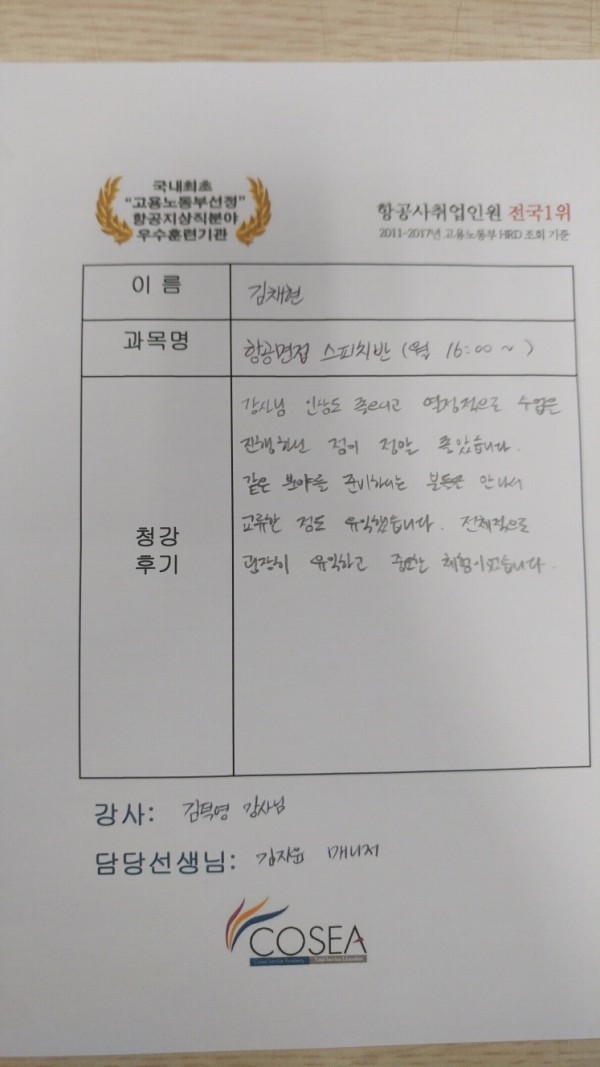 국내최초
"고용노동부선정"
항공지상직분야
우수훈련기관
항공사취업인원 전국1위
2011-2017년 고용노동부 HRD 조회 기준
이 름
김채현
과목명
항공면접 스피치반 (월 16:00 ~ )
청강
후기
강사님 인상도 좋으시고 열정적으로 수업을
진행하신 점이 정말 좋았습니다.
같은 분야를 준비하시는 분들을 만나서
교류한 점도 유익했습니다. 전체적으로
굉장히 유익하고 체험이었습니다.
강사: 김덕영 강사님
담당선생님: 김지윤 매니저
COSEA